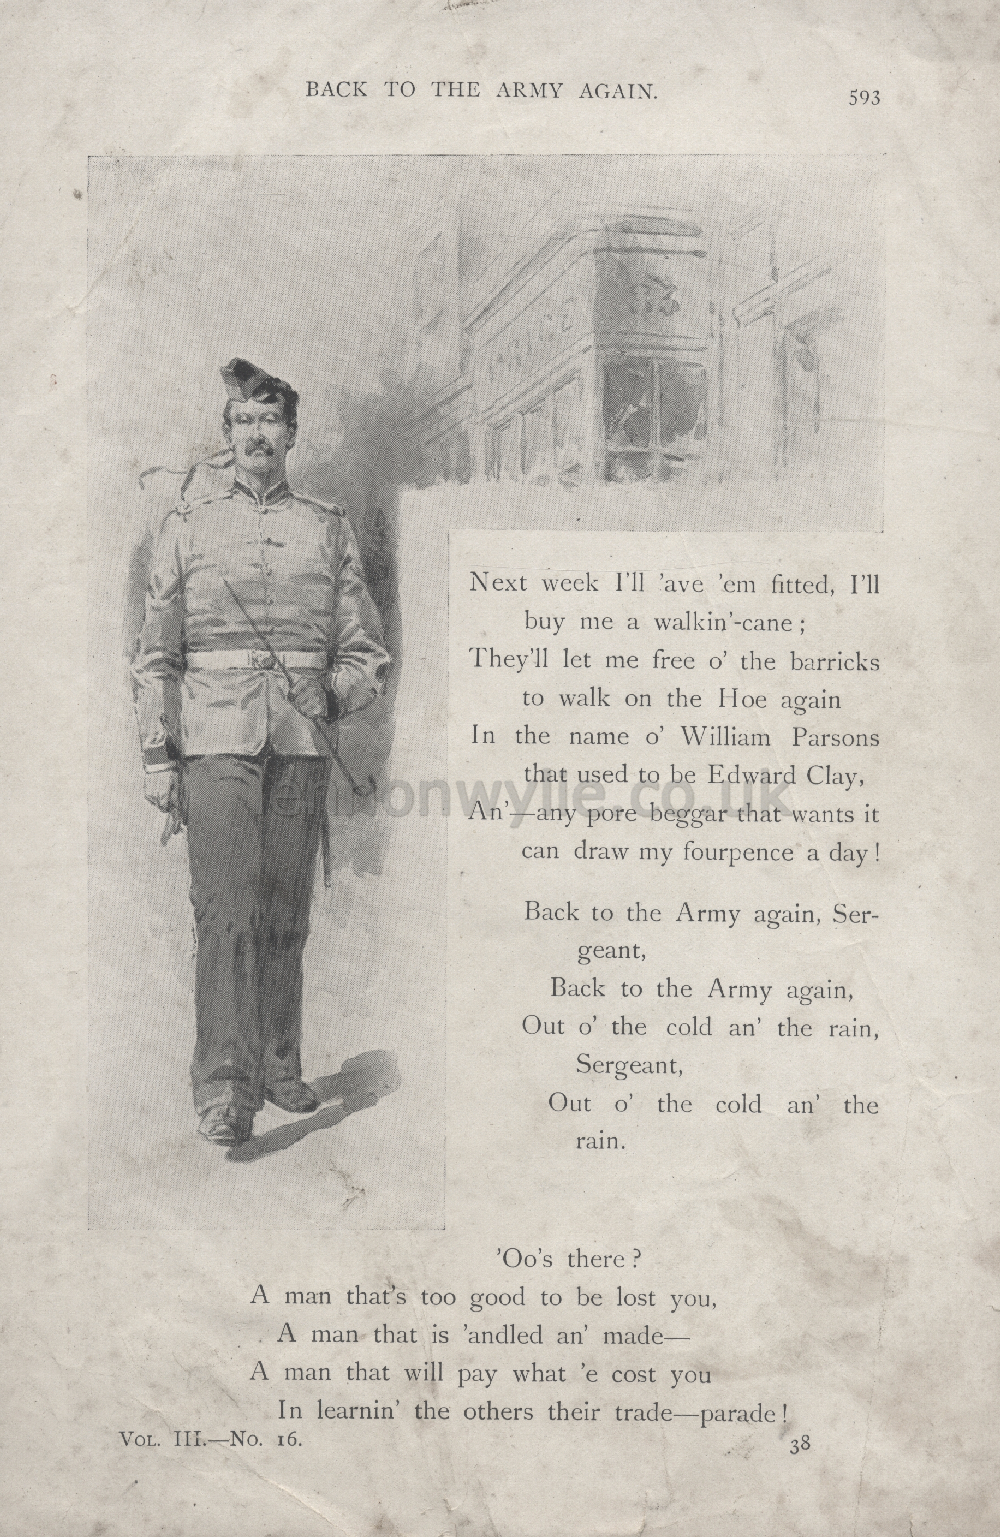 BACK TO THE ARMY AGAIN.
593
Next week I'll 'ave 'em fitted, I'll
buy me a walkin'-cane;
They'll let me free o' the barricks
to walk on the Hoe again
In the name o' William Parsons
that used to be Edward Clay,
An'—any pore beggar that wants it
can draw my fourpence a day!
Back to the Army again, Ser-
geant,
Back to the Army again,
Out o' the cold an' the rain,
Sergeant,
Out o' the cold an' the
rain.
'Oo's there?
A man that's too good to be lost you,
A man that is 'andled an' made—
A man that will pay what 'e cost you
In learnin' the others their trade—parade!
VOL. III.—No. 16.
38
lennonwylie.co.uk